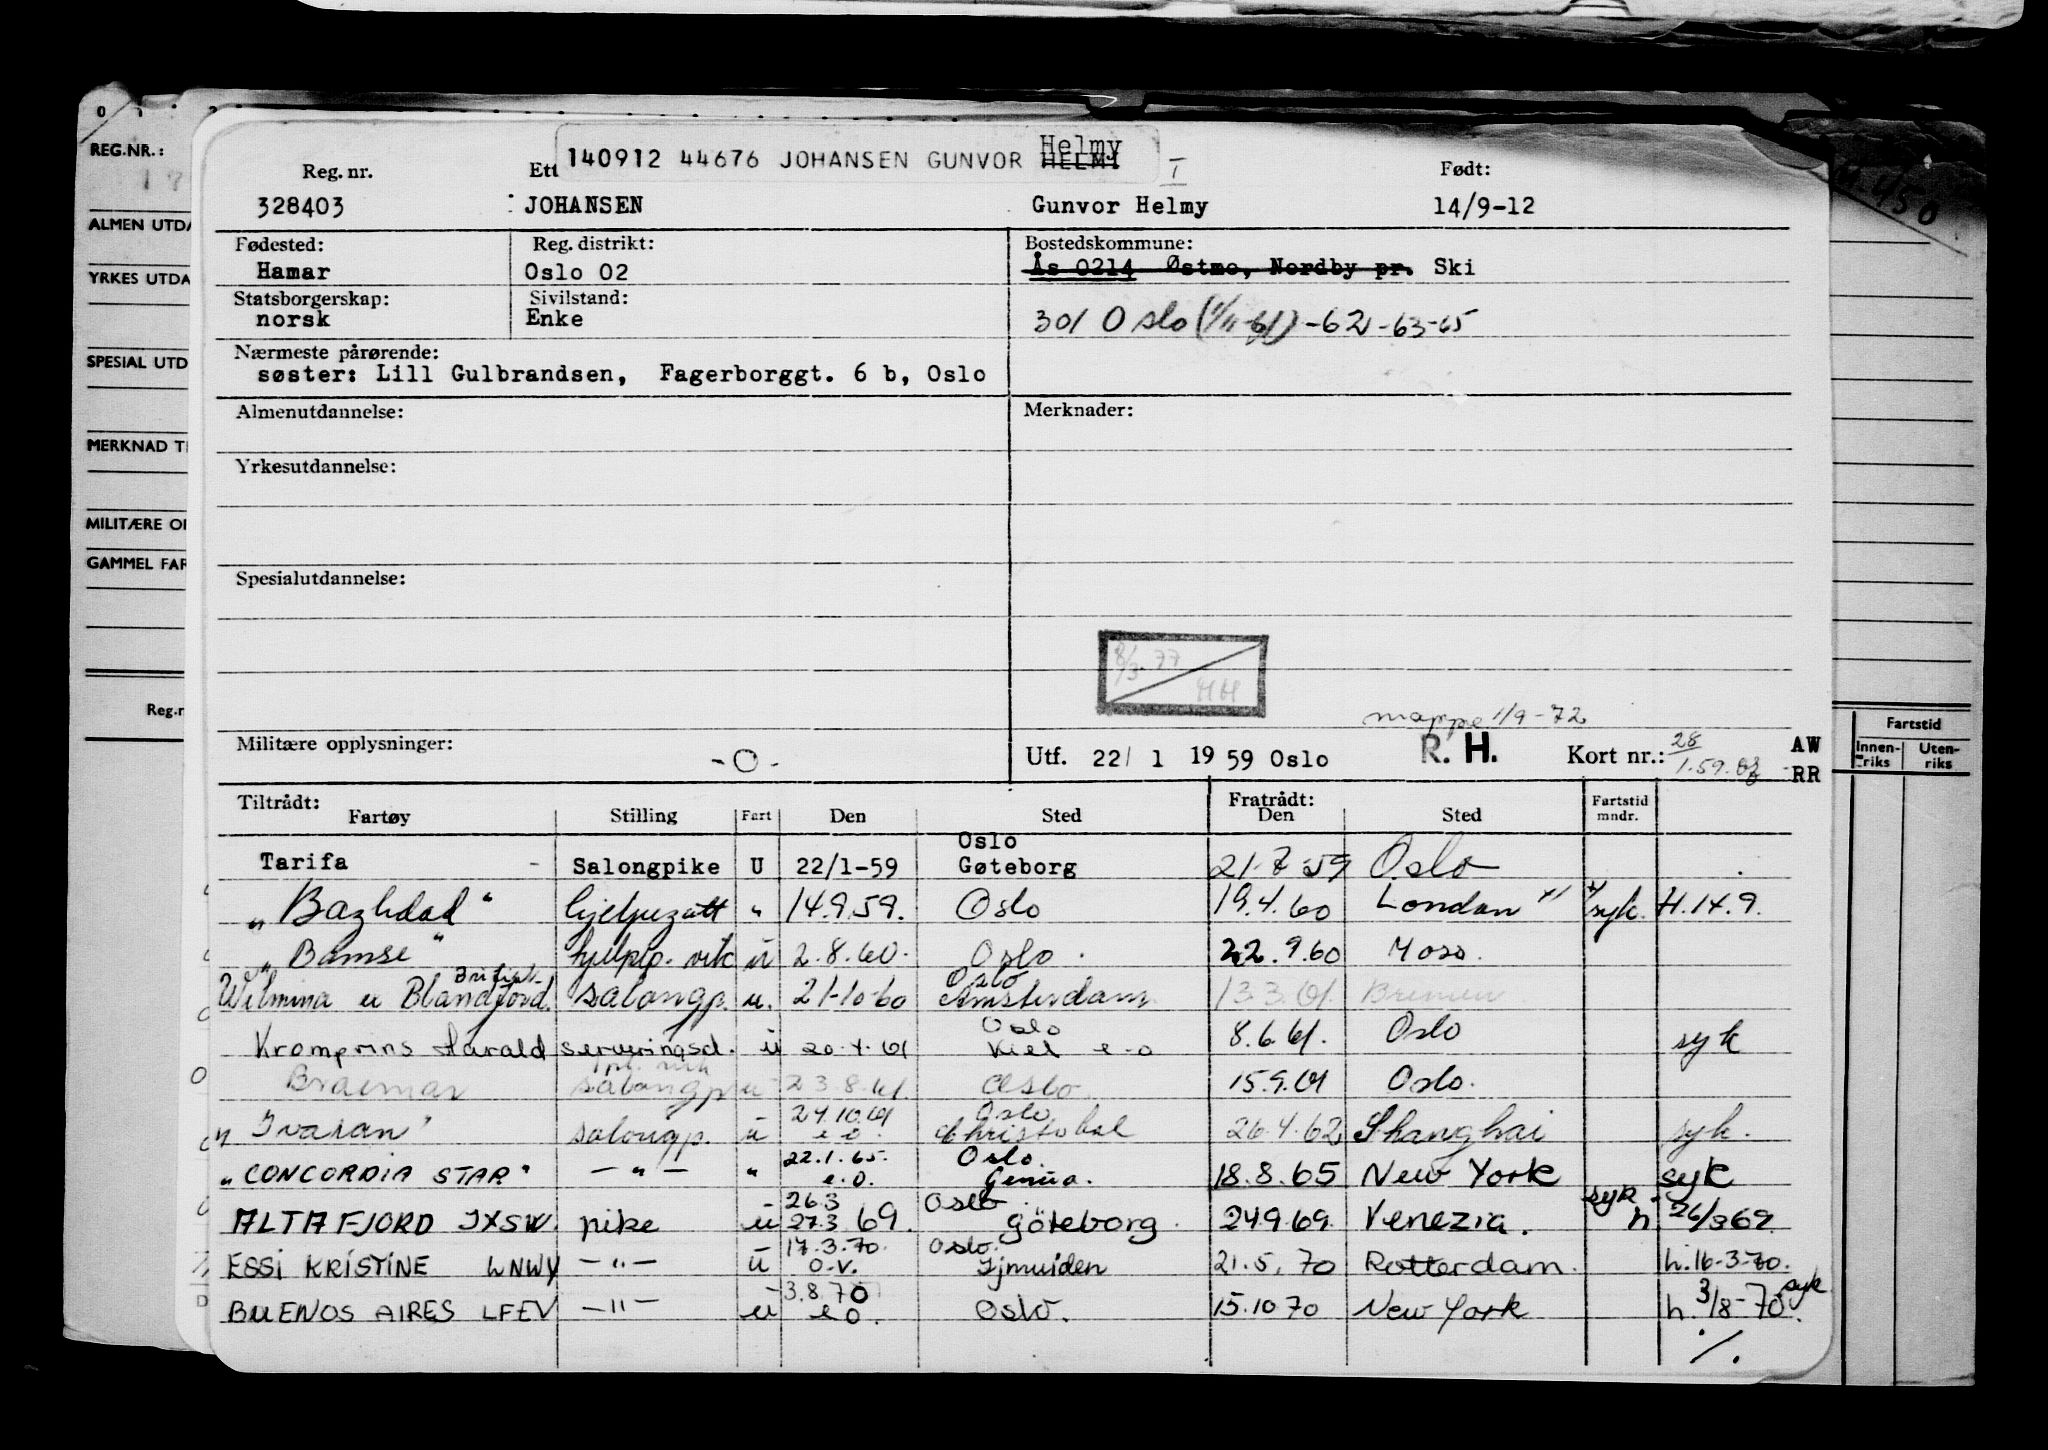 140912 44676 JOHANSEN GUNVOR HELMI Helmy I
Reg. nr. Ett Født:
328403 JOHANSEN Gunvor Helmy 14/9-12
Fødested: Reg. distrikt: Bostedskommune:
Hamar Oslo 02 Ås 0214 Østmo, Nordby pr. Ski
Statsborgerskap: Sivilstand:
norsk Enke 301 Oslo (1/11-61) -62-63-65
Nærmeste pårørende:
søster: Lill Gulbrandsen, Fagerborggt. 6 b, Oslo
Almenutdannelse: Merknader:
Yrkesutdannelse:
Spesialutdannelse:
8/3-77
HH
mappe 1/9-72
Militære opplysninger: -O- Utf. 22/ 1 1959 Oslo R. H. Kort nr.: 28/1.59. AW
RR
Tiltrådt: Fratrådt: Fartstid
Fartøy Stilling Fart Den Sted Den Sted mndr.
Oslo
Tarifa - Salongpike U 22/1-59 Gøteborg 21.7.59 Oslo
"Bazhdad" hjelpezatt " 14.9.59. Oslo 19.4.60 London x/ x/ syk. H.14.9.
"Bamse" hjelpep. vik u 2.8.60. Oslo. 22.9.60 Moss.
Wilmina u Blandfjord. salongp. u. 21-10-60 Oslo Amsterdam 13.3.61. Bremen
Kromprins Harald serveringsd. u 20.4.61 Oslo Kiel e-o 8.6.61. Oslo syk
Braemar salongp u 23.8.61. Oslo. 15.9.61 Oslo.
"Ivaran" salongp. u 24.10.61 e.o. Oslo Christobal 26.4.62 Shanghai syk.
"CONCORDIA STAR" — " — " 22.1.65. e.o. Oslo. Genua. 18.8.65 New York syk
ALTAFJORD JXSW. pike u 26.3 27.3 69. Oslo Göteborg. 24.9.69. Venezia. syk h 26/3 69
ESSI KRISTINE LNWY — " — u 17.3.70. o.v. Oslo. Ijmuiden 21.5.70 Rotterdam. h. 16-3-70.
BUENOS AIRES LFEV — " — u 3.8.70 e o. Oslo. 15.10 70 New York h. 3/8-70. syk
./.
REG.NR.:
ALMEN UTDA
YRKES UTDA
SPESIAL UTD
MERKNAD T
MILITÆRE O
GAMMEL FAR
Reg.n
Fartstid
Innen-riks Uten-riks